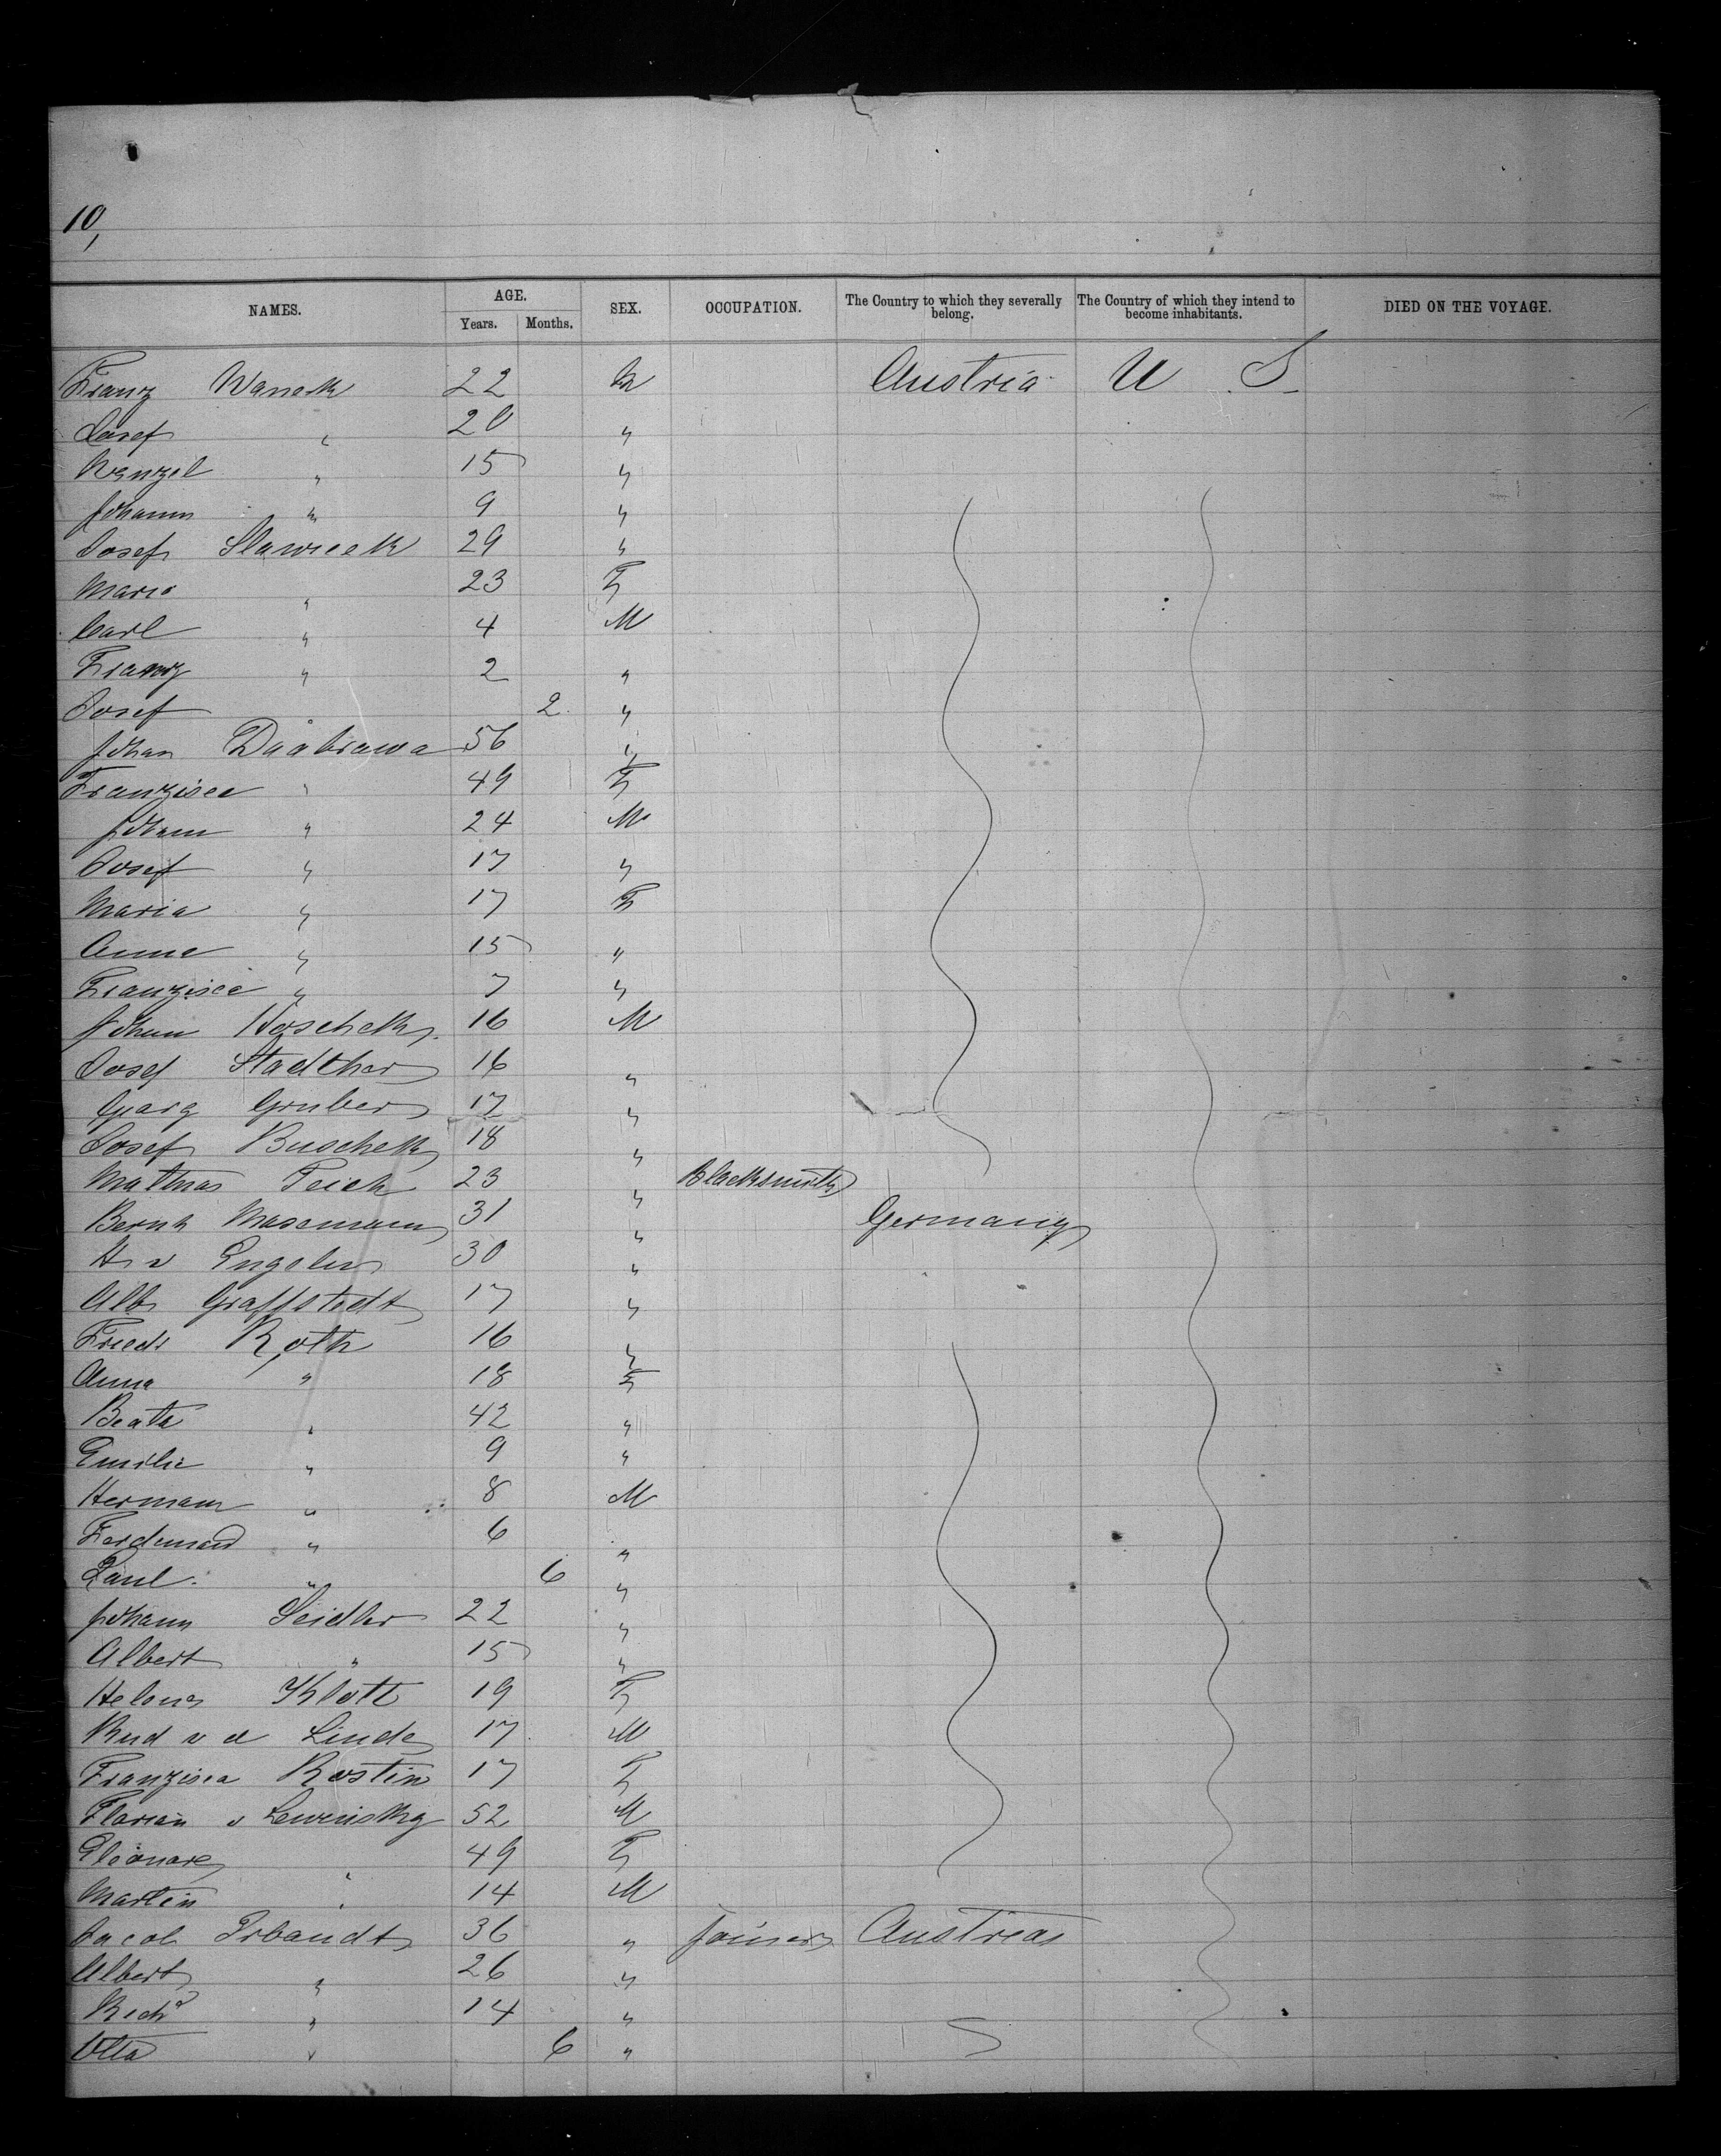 10,
NAMES. AGE. SEX. OCCUPATION. The Country to which they severally belong. The Country of which they intend to become inhabitants. DIED ON THE VOYAGE.
Years. Months.
Franz Wanek 22 M Austria U S
Josef " 20 "
Wenzel " 15 "
Johann " 9 "
Josef Slawicek 29 "
Maria " 23 F
Carl " 4 M
Franz " 2 "
Josef 2 "
Johan 56 "
Franzisca " 49 F
Johann " 24 M
Josef " 17 "
Maria " 17 F
Anna " 15 "
Franzisca " 7 "
Johan 16 M
Josef Stadther 16 "
Georg Gruber 17 "
Josef Buschek 18 "
Mathias Feich 23 " Blacksmith
Bernh Masemann 31 " Germany
H v Engeln 30 "
Alb Graffstedt 17 "
Friedr Roth 16 "
Anna " 18 F
Beata " 42 "
Emilie " 9 "
Hermann " 8 M
Ferdinand " 6 "
Paul " 6 "
Johann Seidler 22 "
Albert " 15 "
Helena Klott 19 F
Rud v d Linde 17 M
Franzisca Rostin 17 F
Florian v Lewinsky 52 M
Eleonore " 49 F
Martin " 14 M
Jacob Erbandt 36 " Joiner Austria
Albert " 26 "
Richd " 14 "
Otto " 6 "